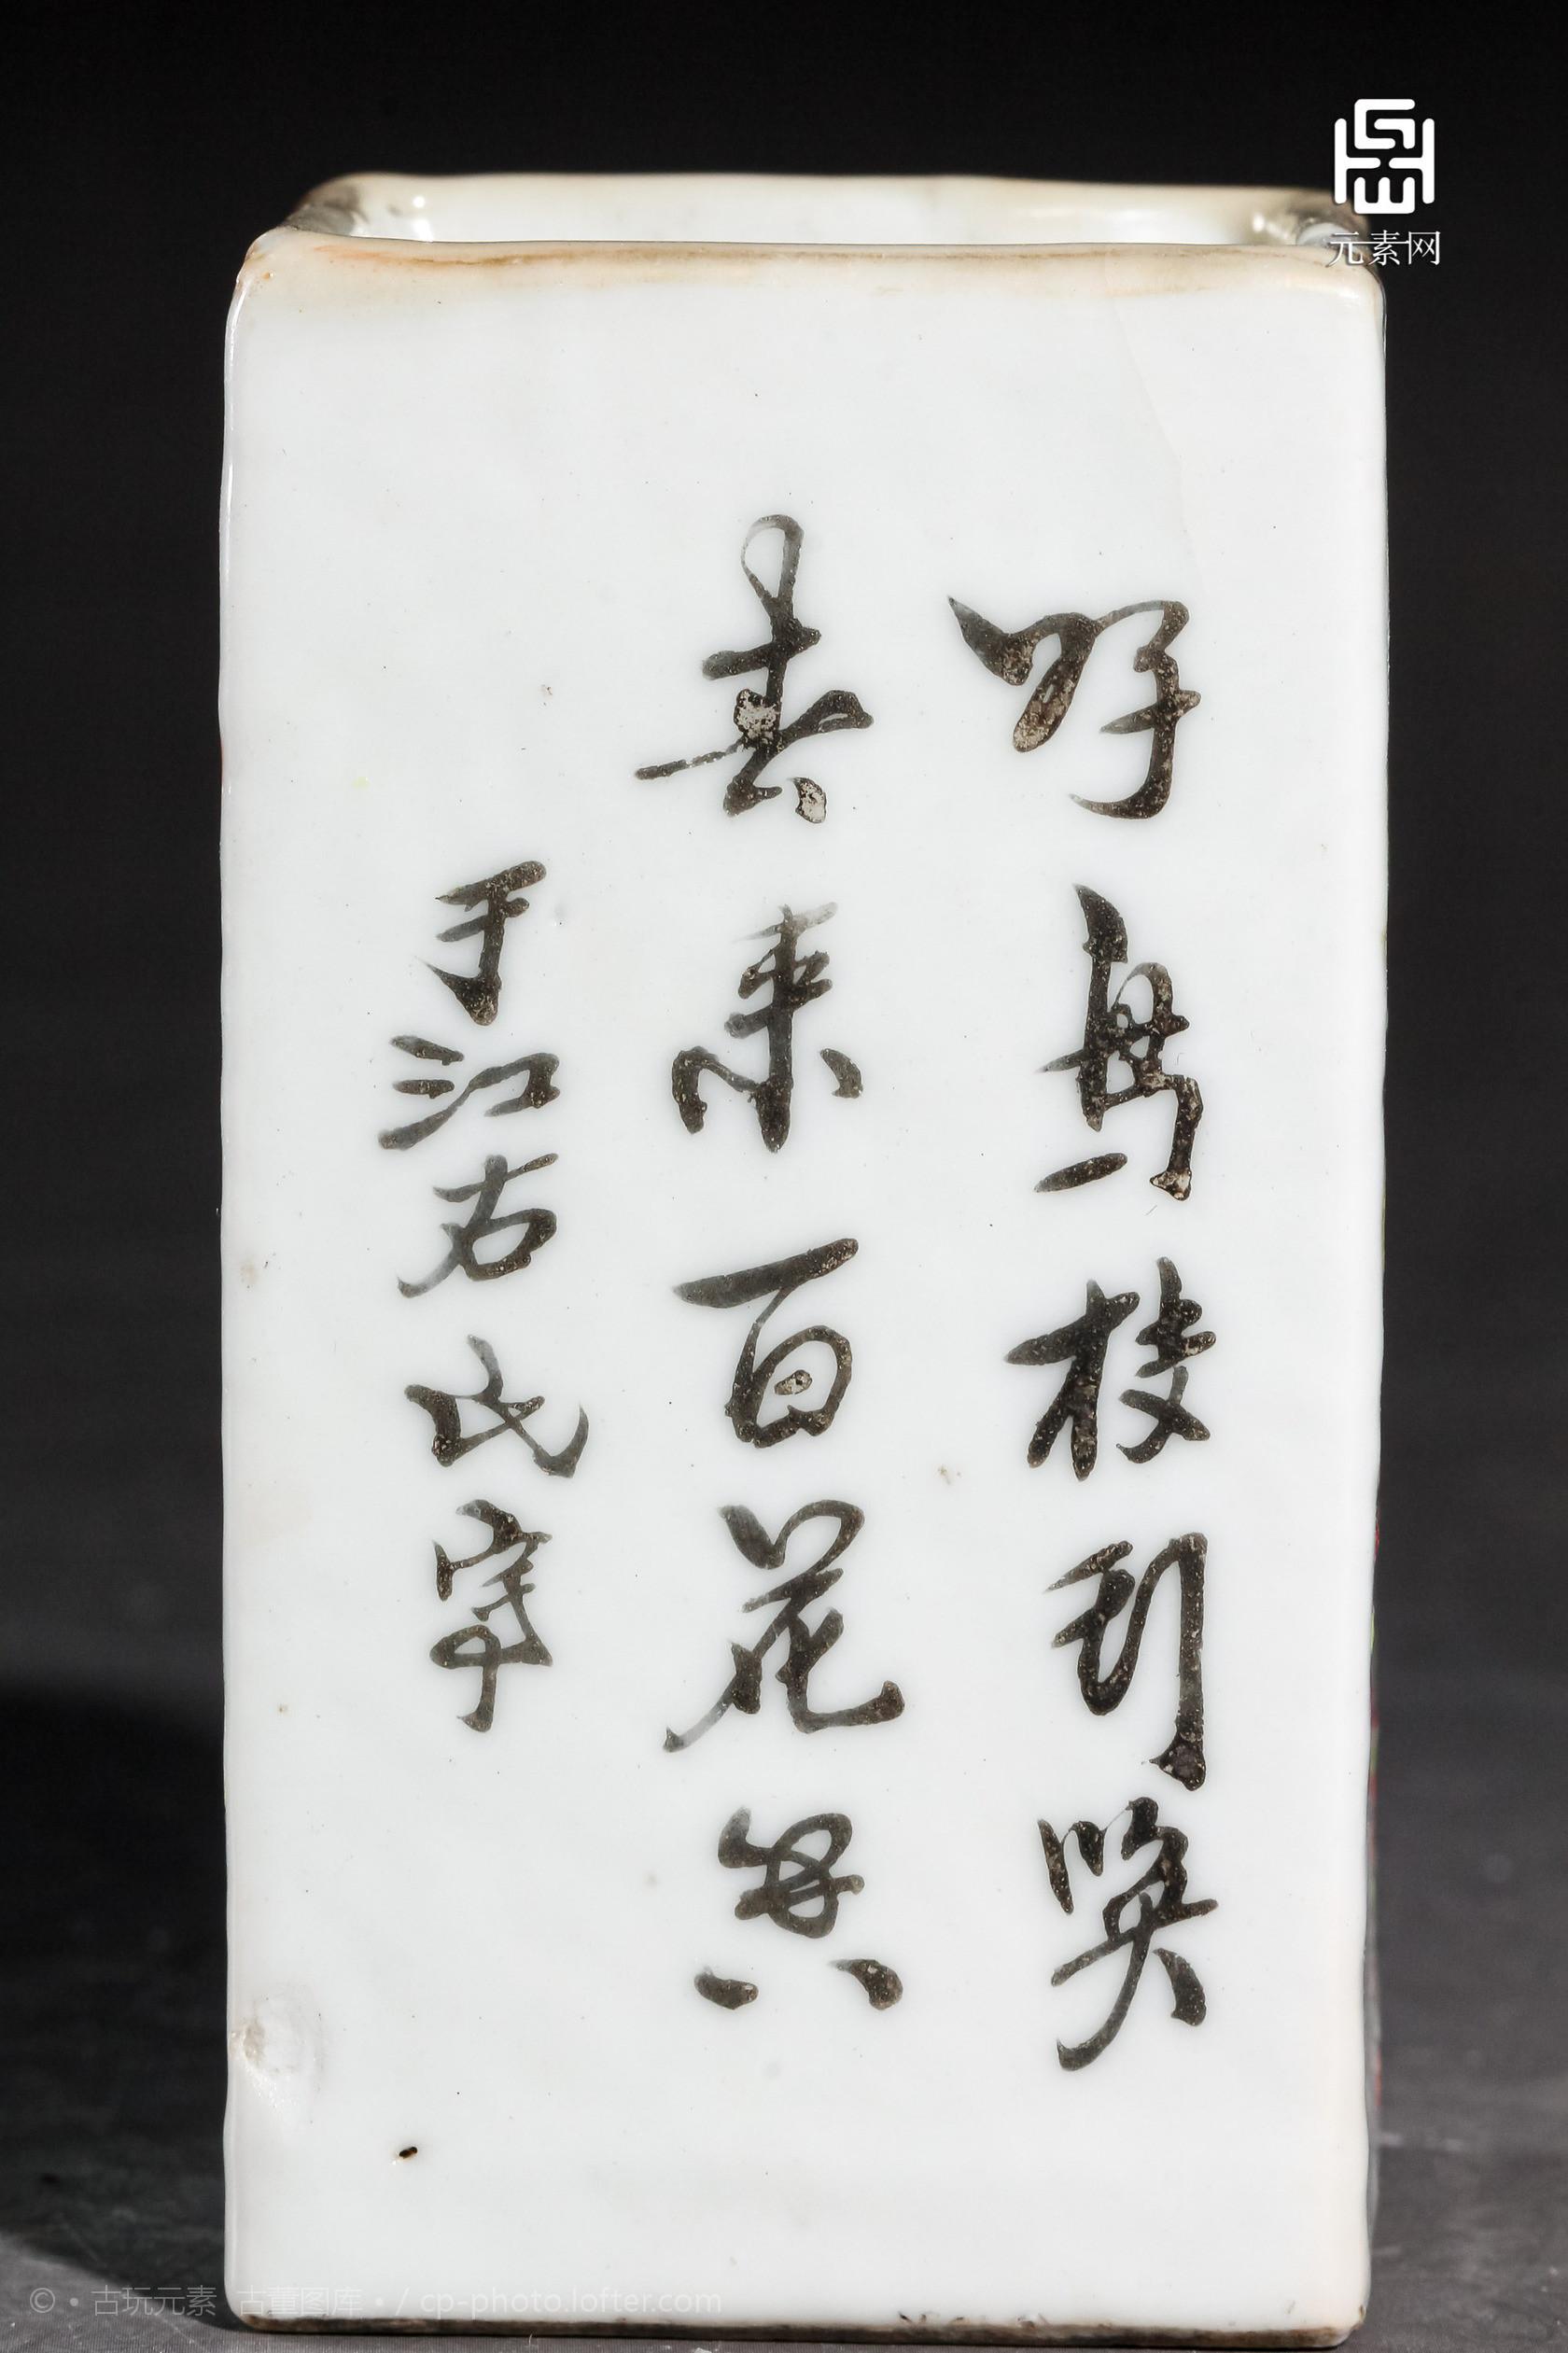 好鳥枝頭喚
春来百花興
于江右氏寫
元素网
©・古玩元素 古董图库・/ cp-photo.lofter.com